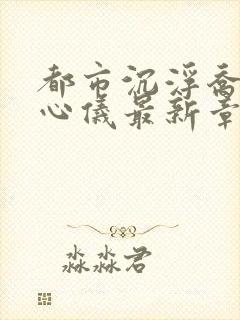 都市沉浮乔
心仪最新章
淼淼君